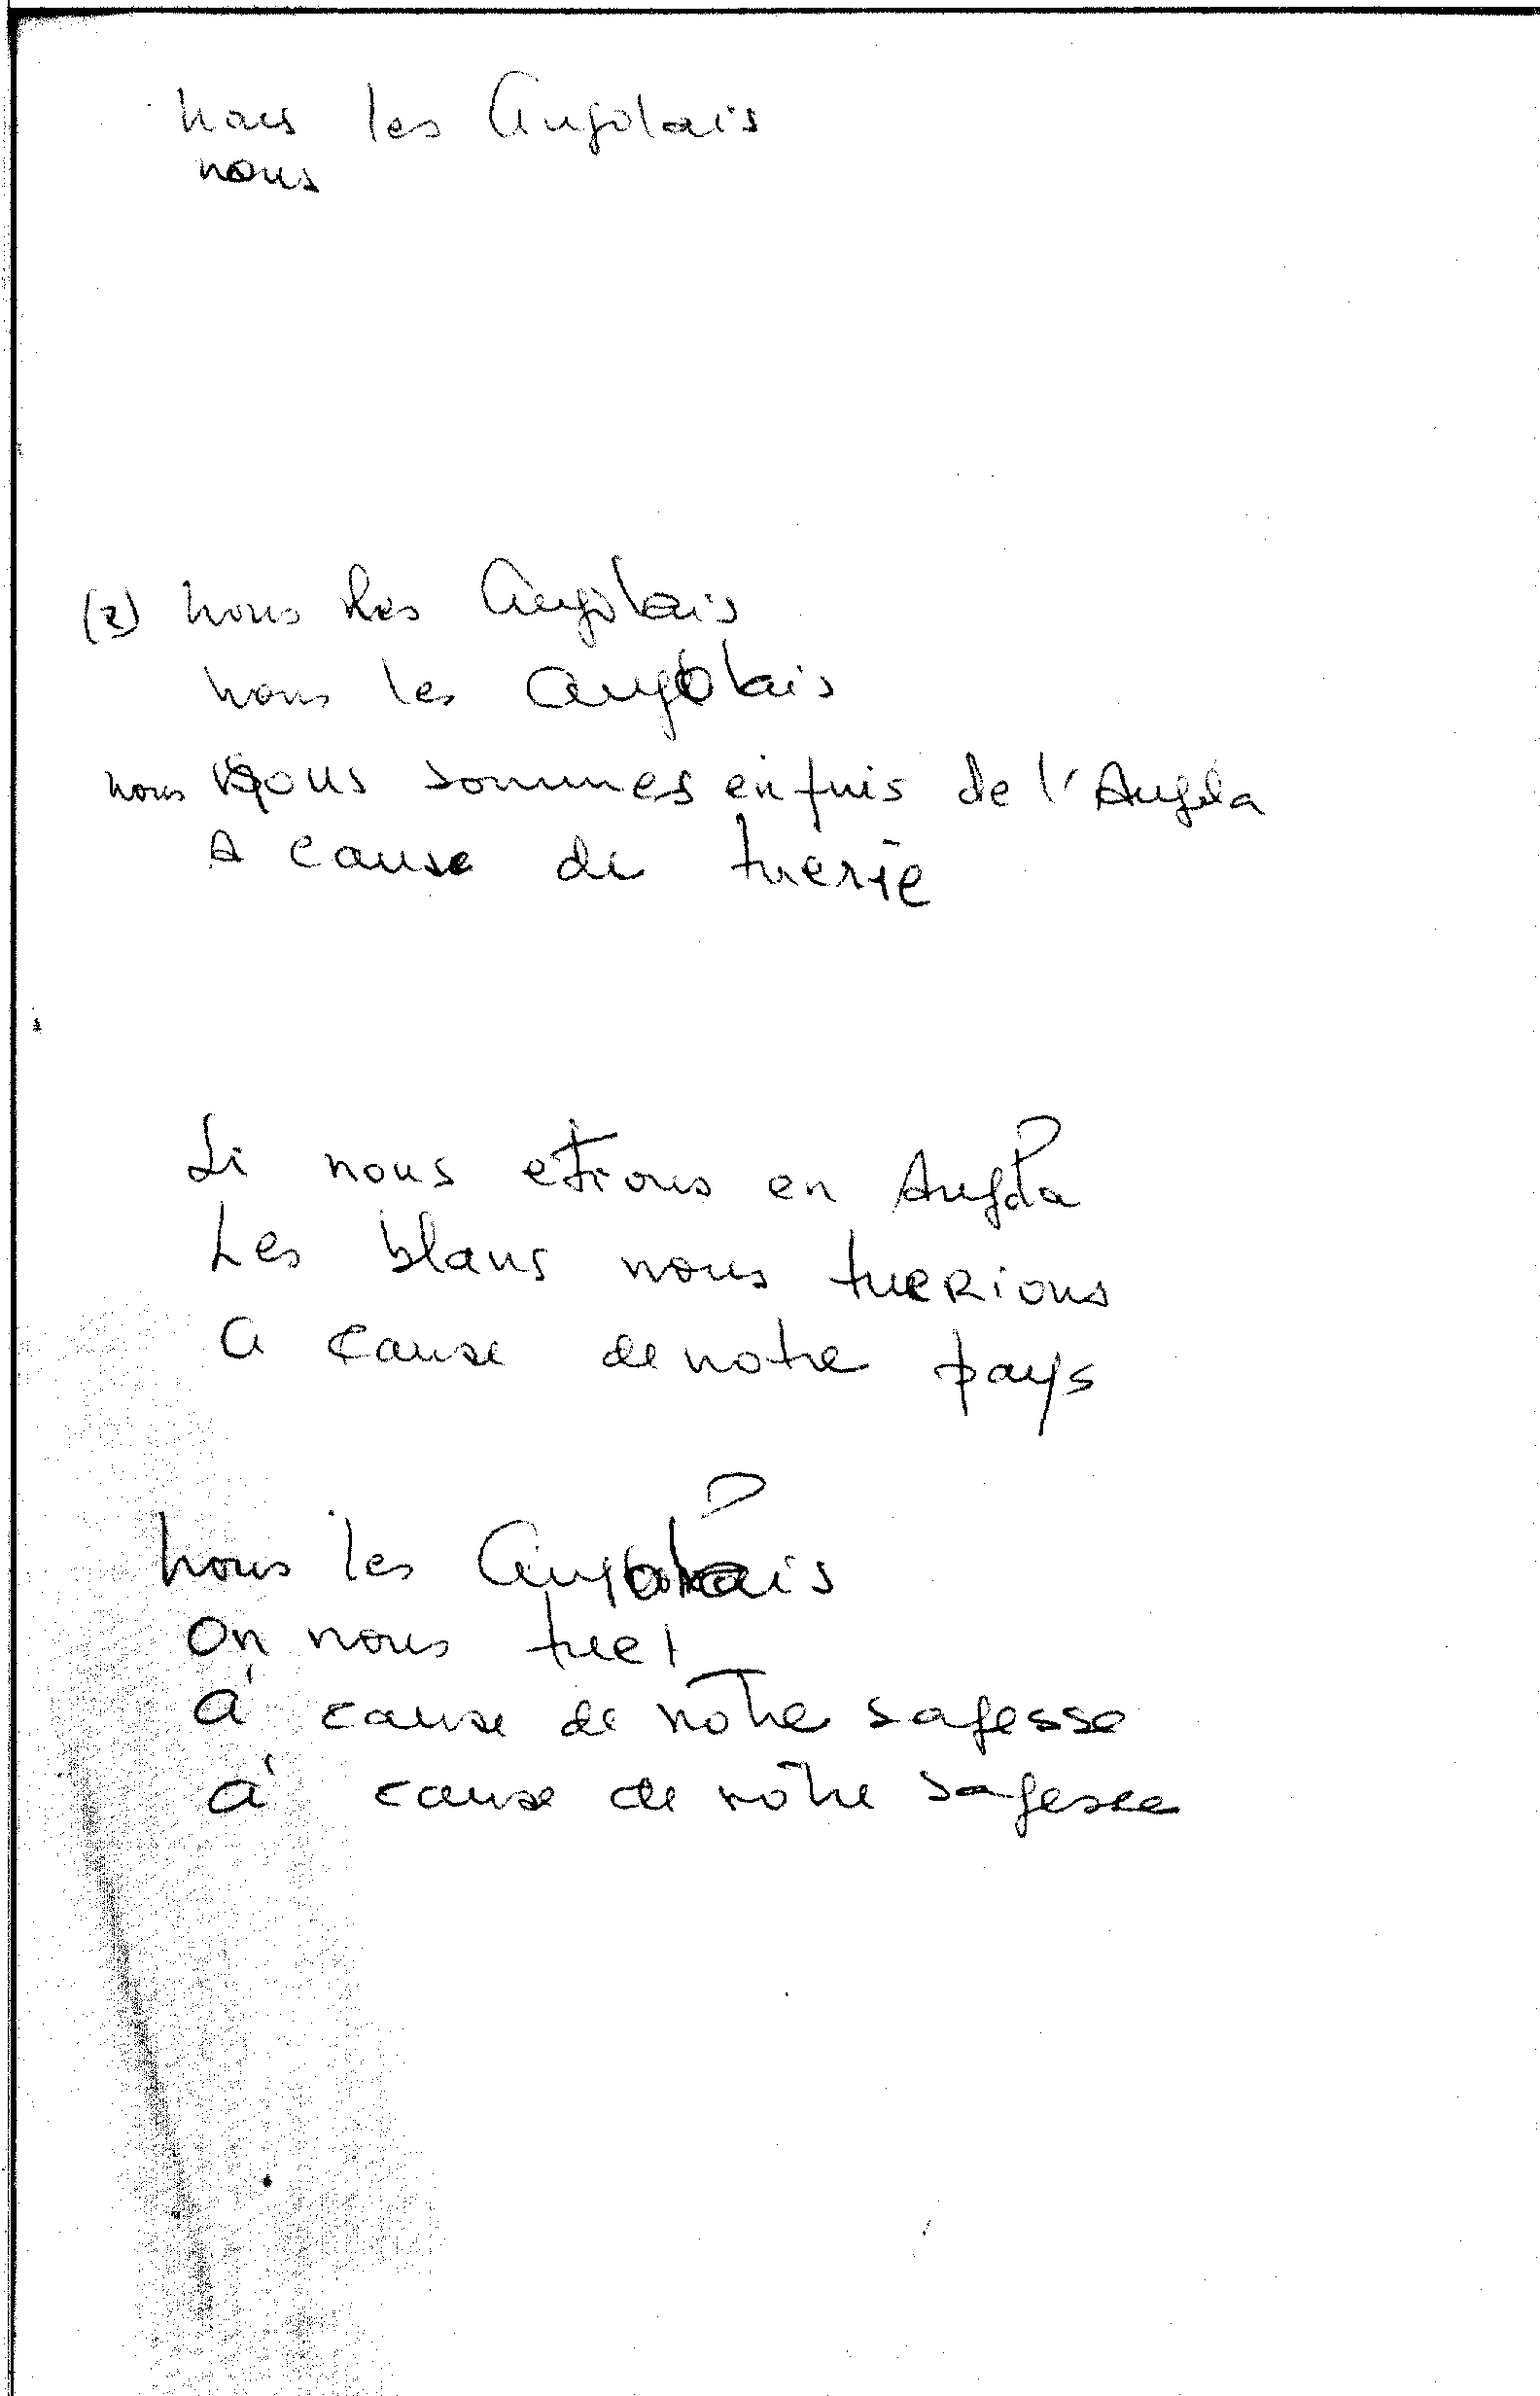 nous les Angolais
nous
(2) nous les Angolais
nous les Angolais
nous nous sommes enfuis de l'Angola
A cause de tuerie
Si nous etions en Angola
Les blans nous tuerions
A cause de notre pays
nous les Angolais
On nous tue!
á cause de notre sagesse
á cause de notre sagesse